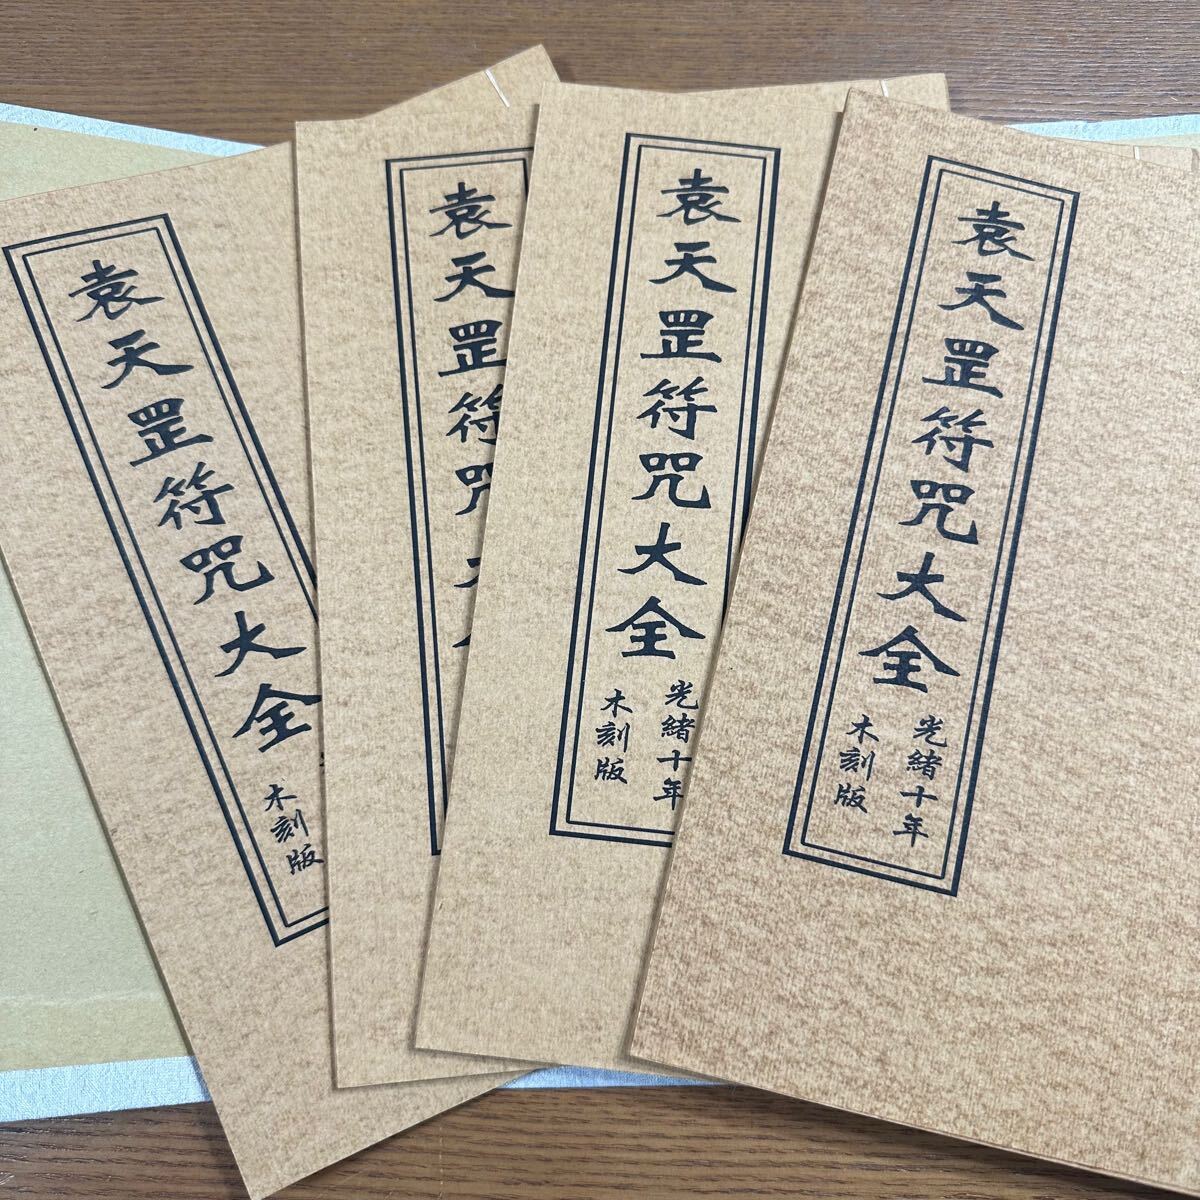 袁天罡符咒大全
木刻版
袁天罡符咒大全
袁天罡符咒大全
光緒十年
木刻版
袁天罡符咒大全
光緒十年
木刻版